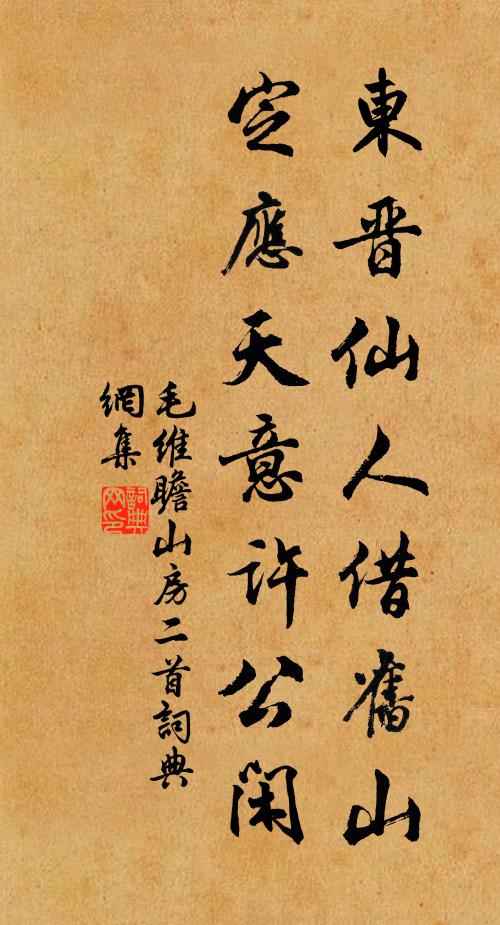 東晋仙人借舊山
定應天意許公閑
毛維瞻山房二首詞典
網集
詞典
网印